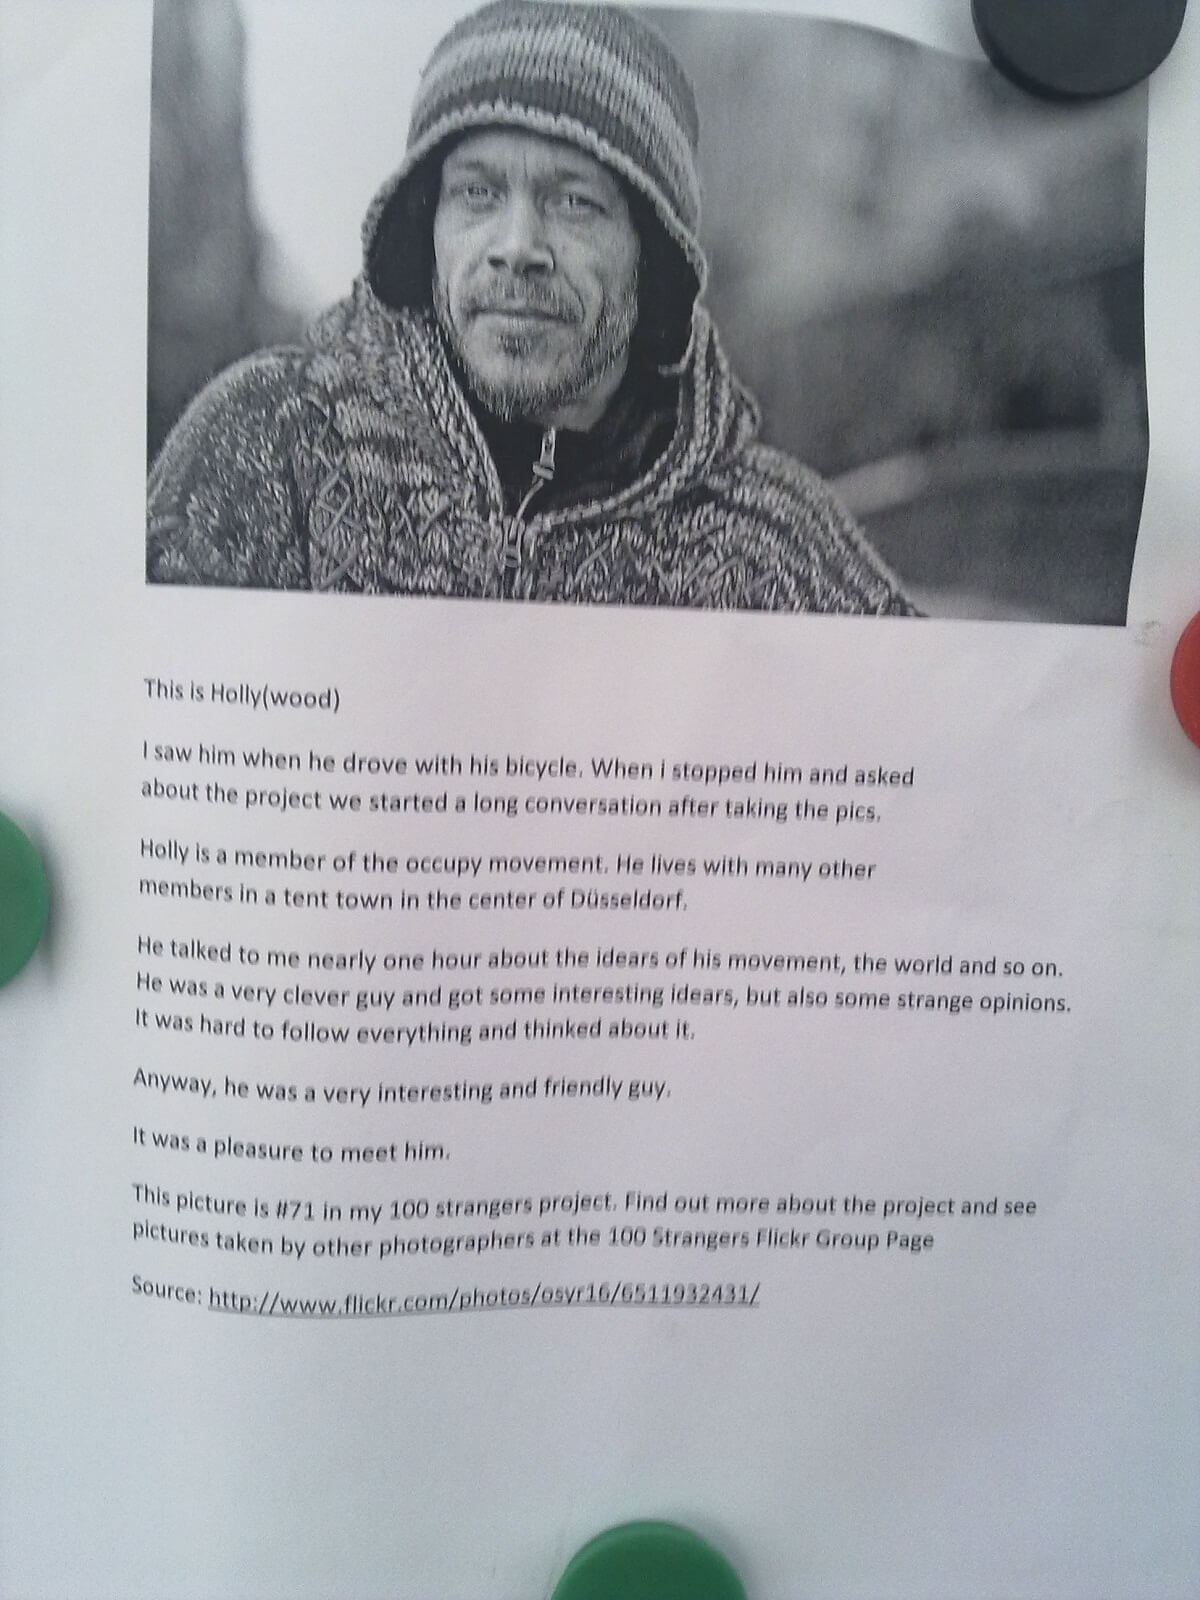 This is Holly(wood)
I saw him when he drove with his bicycle. When i stopped him and asked
about the project we started a long conversation after taking the pics.
Holly is a member of the occupy movement. He lives with many other
members in a tent town in the center of Düsseldorf.
He talked to me nearly one hour about the idears of his movement, the world and so on.
He was a very clever guy and got some interesting idears, but also some strange opinions.
It was hard to follow everything and thinked about it.
Anyway, he was a very interesting and friendly guy.
It was a pleasure to meet him.
This picture is #71 in my 100 strangers project. Find out more about the project and see
pictures taken by other photographers at the 100 Strangers Flickr Group Page
Source: http://www.flickr.com/photos/osyr16/6511932431/